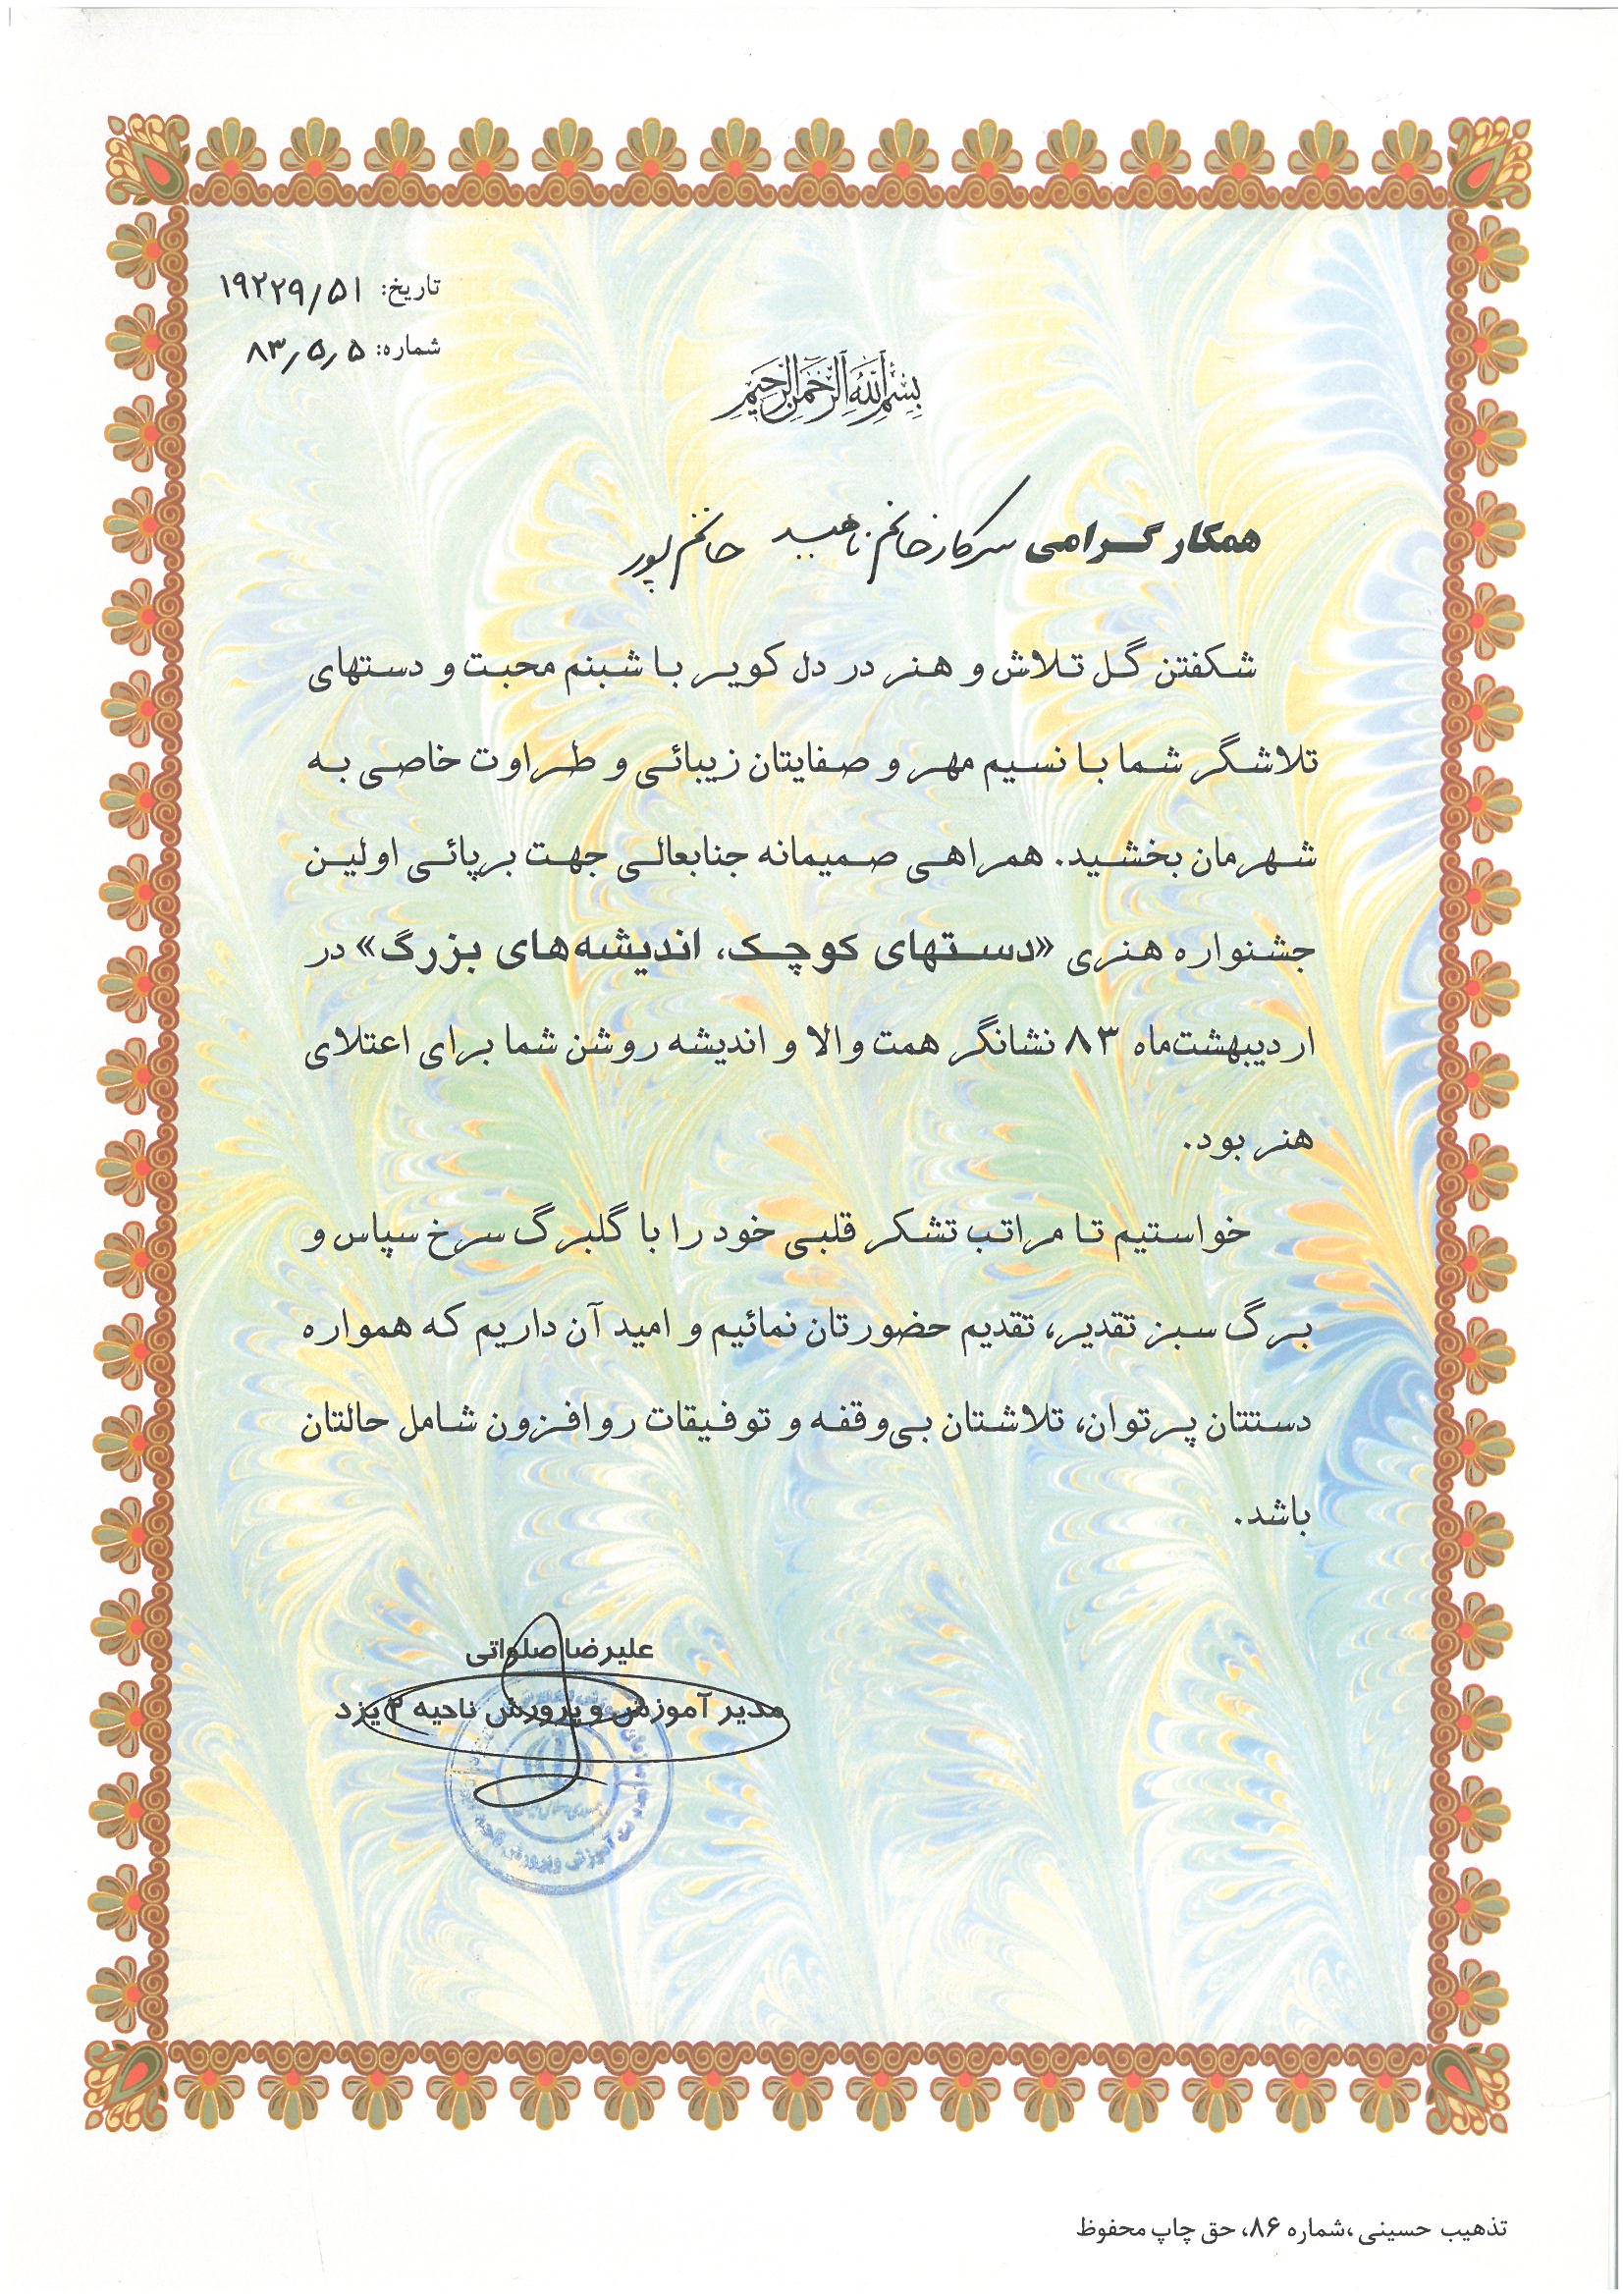 تاریخ: ۱۹۲۲۹/۵۱
شماره: ۸۳/۵/۵
بسم الله الرحمن الرحیم
همکار گرامی سرکار خانم ناهید خانم پور
شکفتن گل تلاش و هنر در دل کویر با شبنم محبت و دستهای
تلاشگر شما با نسیم مهر و صفایتان زیبائی و طراوت خاصی به
شهرمان بخشید. همراهی صمیمانه جنابعالی جهت برپائی اولین
جشنواره هنری «دستهای کوچک، اندیشه‌های بزرگ» در
اردیبهشت‌ماه ۸۳ نشانگر همت والا و اندیشه روشن شما برای اعتلای
هنر بود.
خواستیم تا مراتب تشکر قلبی خود را با گلبرگ سرخ سپاس و
برگ سبز تقدیر، تقدیم حضورتان نمائیم و امید آن داریم که همواره
دستتان پرتوان، تلاشتان بی‌وقفه و توفیقات روافزون شامل حالتان
باشد.
علیرضا صلواتی
مدیر آموزش و پرورش ناحیه ۲ یزد
تذهیب حسینی، شماره ۸۶، حق چاپ محفوظ